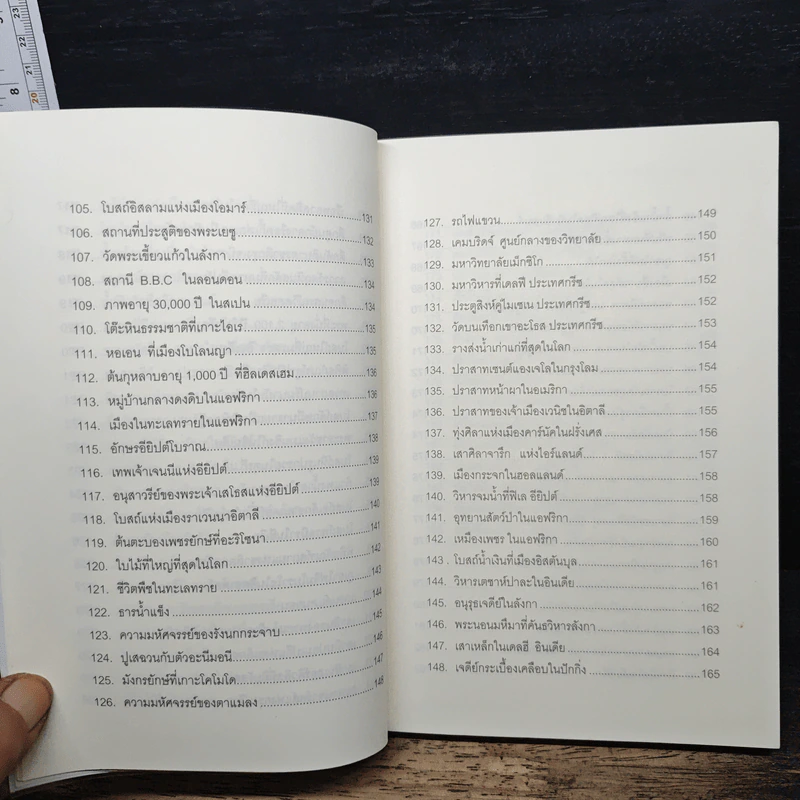 8
20
21
22
23
105. โบสถ์อิสลามแห่งเมืองโอมาร์ 131
106. สถานที่ประสูติของพระเยซู 132
107. วัดพระเขี้ยวแก้วในลังกา 133
108. สถานี B.B.C ในลอนดอน 134
109. ภาพอายุ 30,000 ปี ในสเปน 134
110. โต๊ะหินธรรมชาติที่เกาะไอเร 135
111. หอเอน ที่เมืองโบโลนญา 135
112. ต้นกุหลาบอายุ 1,000 ปี ที่ฮิลเดสเฮม 136
113. หมู่บ้านกลางดงดิบในแอฟริกา 136
114. เมืองในทะเลทรายในแอฟริกา 137
115. อักษรอียิปต์โบราณ 138
116. เทพเจ้าเจนนีแห่งอียิปต์ 139
117. อนุสาวรีย์ของพระเจ้าเสโอสแห่งอียิปต์ 139
118. โบสถ์แห่งเมืองราเวนนาอิตาลี 140
119. ต้นตะบองเพชรยักษ์ที่อะริโซนา 141
120. ใบไม้ที่ใหญ่ที่สุดในโลก 142
121. ชีวิตพืชในทะเลทราย 143
122. ธารน้ำแข็ง 144
123. ความมหัศจรรย์ของรังนกกระจาบ 145
124. ปูเสฉวนกับตัวอะนีมอนี 146
125. มังกรยักษ์ที่เกาะโคโมโด 147
126. ความมหัศจรรย์ของตาแมลง 148
127. รถไฟแขวน 149
128. เคมบริดจ์ ศูนย์กลางของวิทยาลัย 150
129. มหาวิทยาลัยเม็กซิโก 151
130. มหาวิหารที่เดลฟี ประเทศกรีซ 152
131. ประตูสิงห์คู่ไมเซเน ประเทศกรีซ 152
132. วัดบนเทือกเขาอะโธส ประเทศกรีซ 153
133. รางส่งน้ำเก่าแก่ที่สุดในโลก 154
134. ปราสาทเซนต์แองเจโลในกรุงโลม 154
135. ปราสาทหน้าผาในอเมริกา 155
136. ปราสาทของเจ้าเมืองเวนิชในอิตาลี 155
137. ทุ่งศิลาแห่งเมืองคาร์นัคในฝรั่งเศส 156
138. เสาศิลาจารึก แห่งไอร์แลนด์ 157
139. เมืองกระจกในฮอลแลนด์ 158
140. วิหารจมน้ำที่ฟิเล อียิปต์ 158
141. อุทยานสัตว์ป่าในแอฟริกา 159
142. เหมืองเพชร ในแอฟริกา 160
143. โบสถ์น้ำเงินที่เมืองอิสตันบุล 161
144. วิหารเตชาห์ปาละในอินเดีย 161
145. อนุรุธเจดีย์ในลังกา 162
146. พระนอนมหึมาที่คันธวิหารลังกา 163
147. เสาเหล็กในเดลฮี อินเดีย 164
148. เจดีย์กระเบื้องเคลือบในปักกิ่ง 165